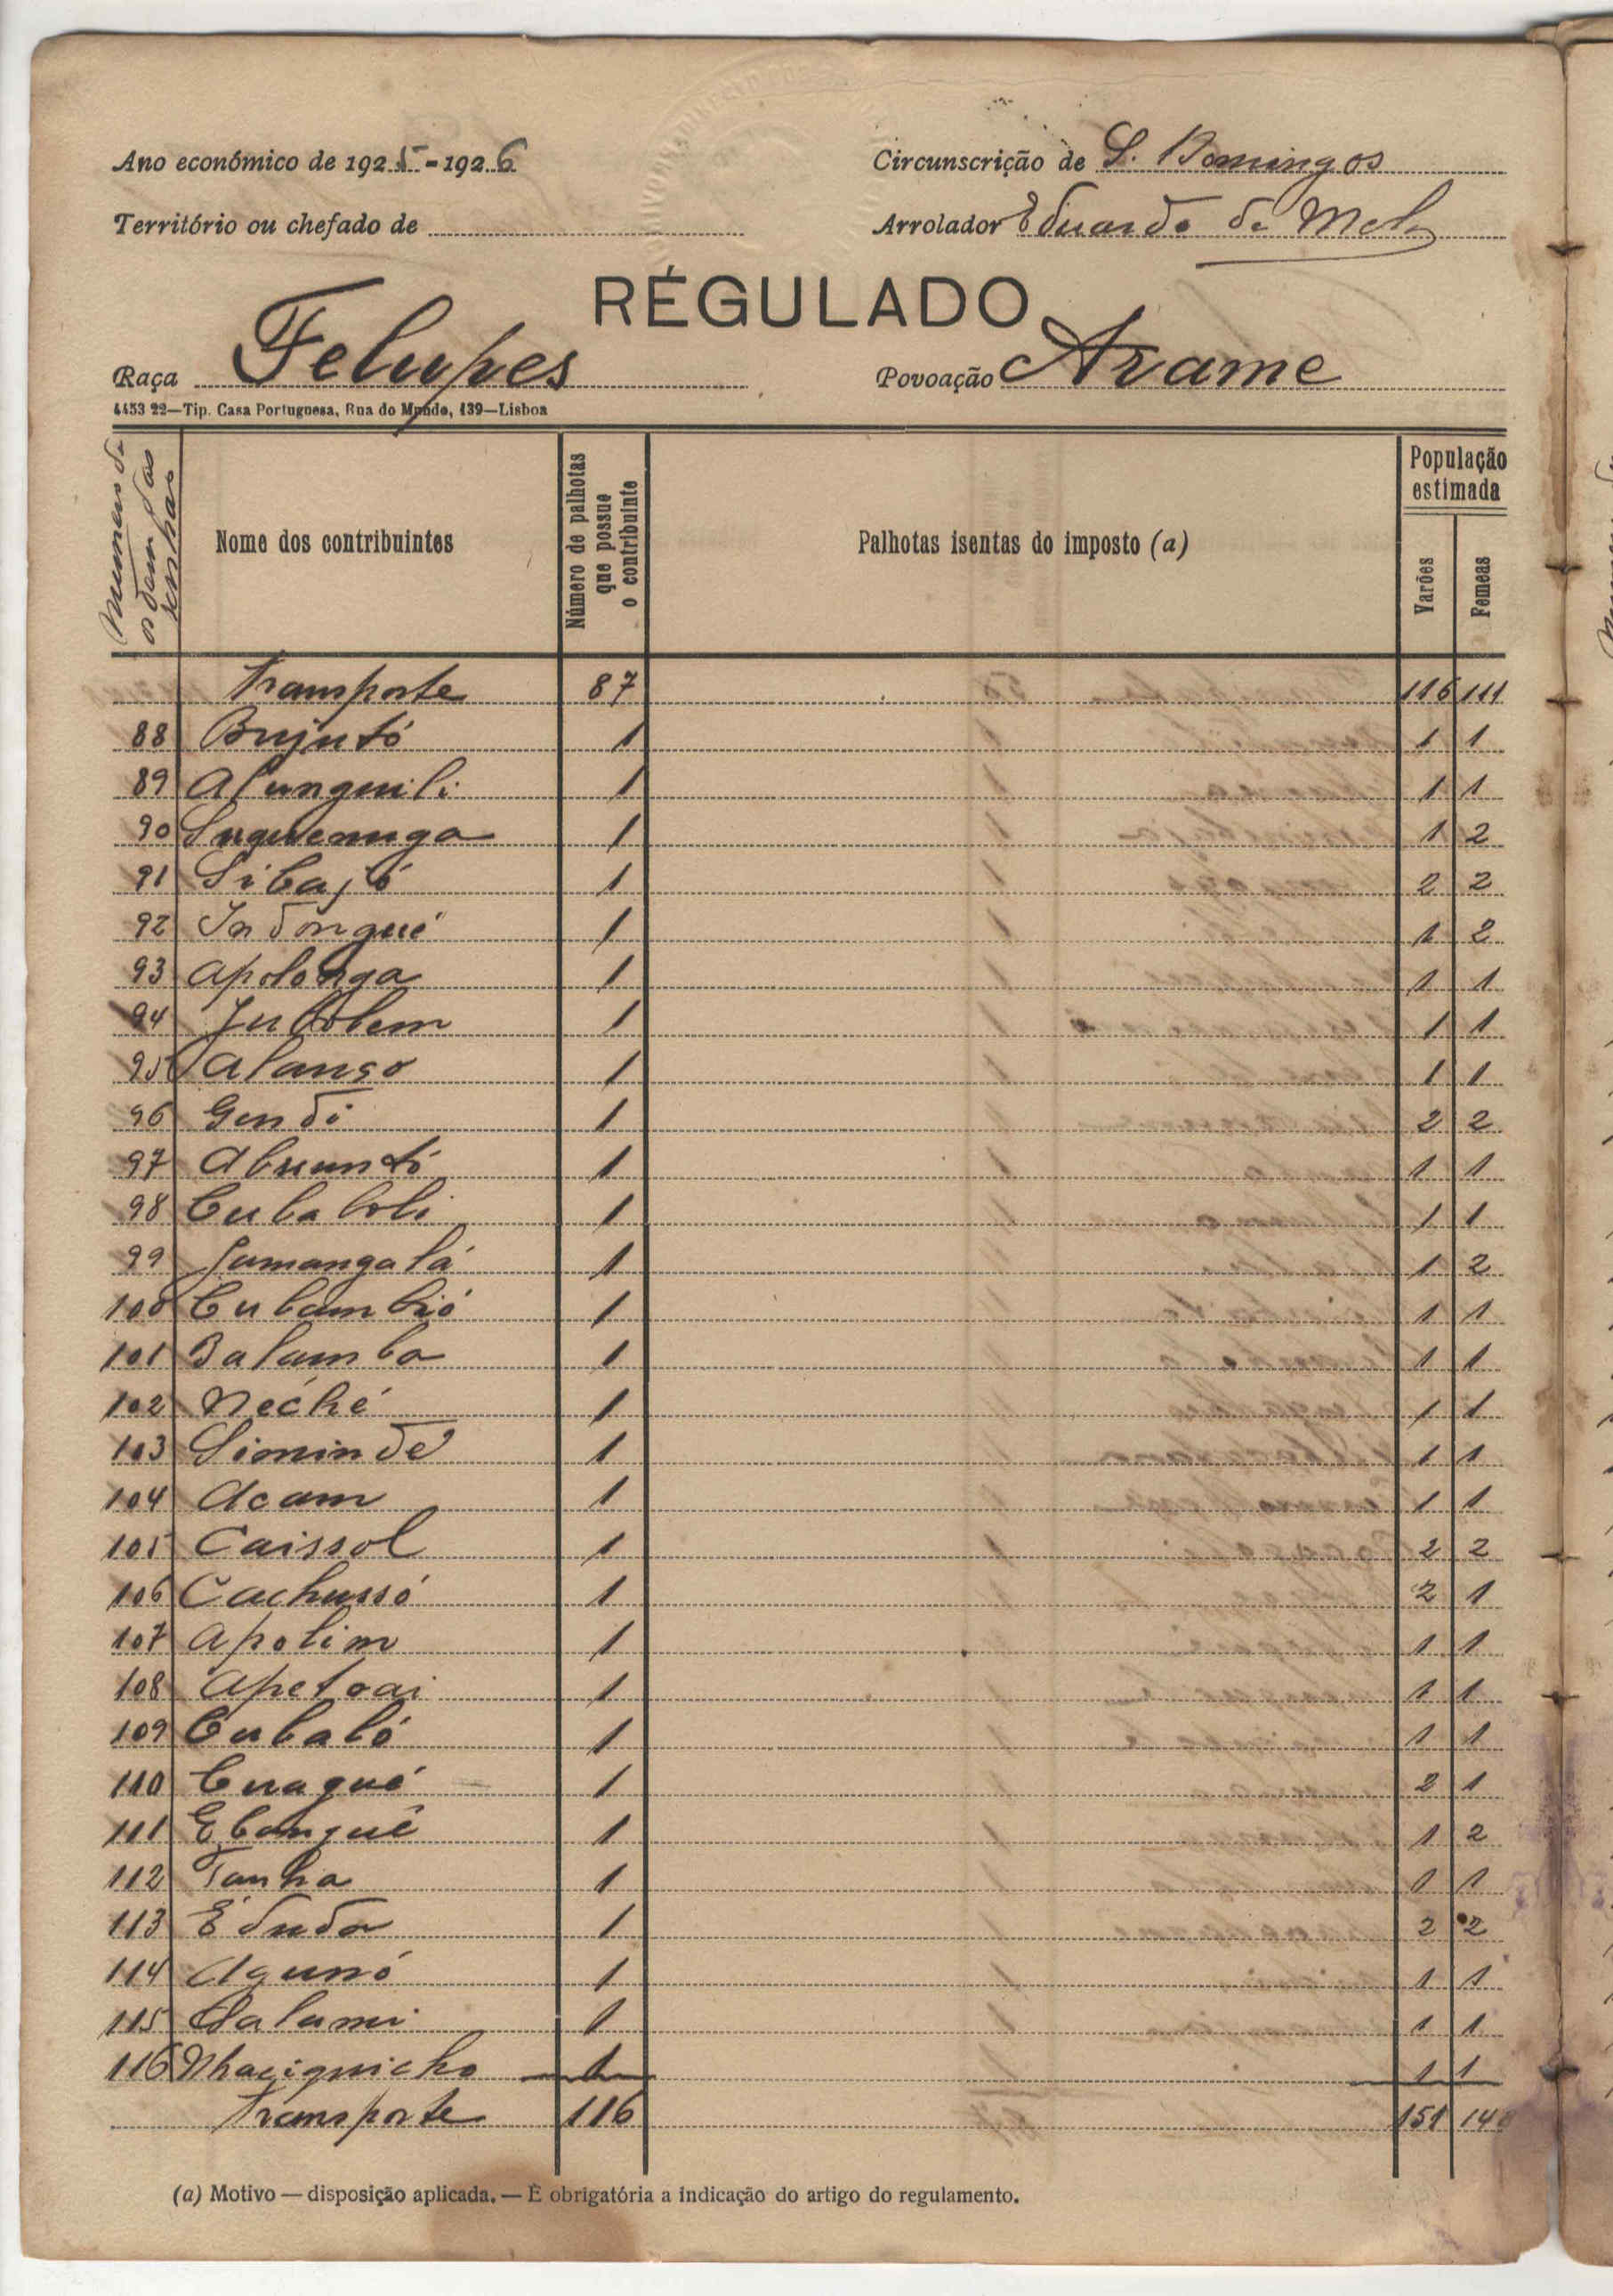 Ano económico de 1925-1926
Circunscrição de S. Domingos
Território ou chefado de
Arrolador Eduardo de Melo
RÉGULADO
Raça Felupes
Povoação Arame
4453 22—Tip. Casa Portuguesa, Rua do Mundo, 139—Lisboa
Numero de ordem das senhas
Nome dos contribuintes
Número de palhotas que possue o contribuinte
Palhotas isentas do imposto (a)
População estimada
Varões
Femeas
Transporte 87 116 111
88 Bujutó 1 1 1
89 Alunguili 1 1 1
90 Suguenuga 1 1 2
91 Sibajó 1 2 2
92 Indongué 1 1 2
93 Apolonga 1 1 1
94 Jubolem 1 1 1
95 Alanso 1 1 1
96 Gendi 1 2 2
97 Abuuntó 1 1 1
98 Cubaboli 1 1 1
99 Jamangalá 1 1 2
100 Cubambió 1 1 1
101 Balamba 1 1 1
102 Neché 1 1 1
103 Siminde 1 1 1
104 Acam 1 1 1
105 Caissol 1 2 2
106 Cachussó 1 2 1
107 Apolim 1 1 1
108 Apetoai 1 1 1
109 Cubaló 1 1 1
110 Cuagué 1 2 1
111 Ebongué 1 1 2
112 Tanha 1 1 1
113 Eduda 1 2 2
114 Agunó 1 1 1
115 Salami 1 1 1
116 Nhaciquicho 1 1 1
Transporte 116 151 148
(a) Motivo — disposição aplicada. — É obrigatória a indicação do artigo do regulamento.